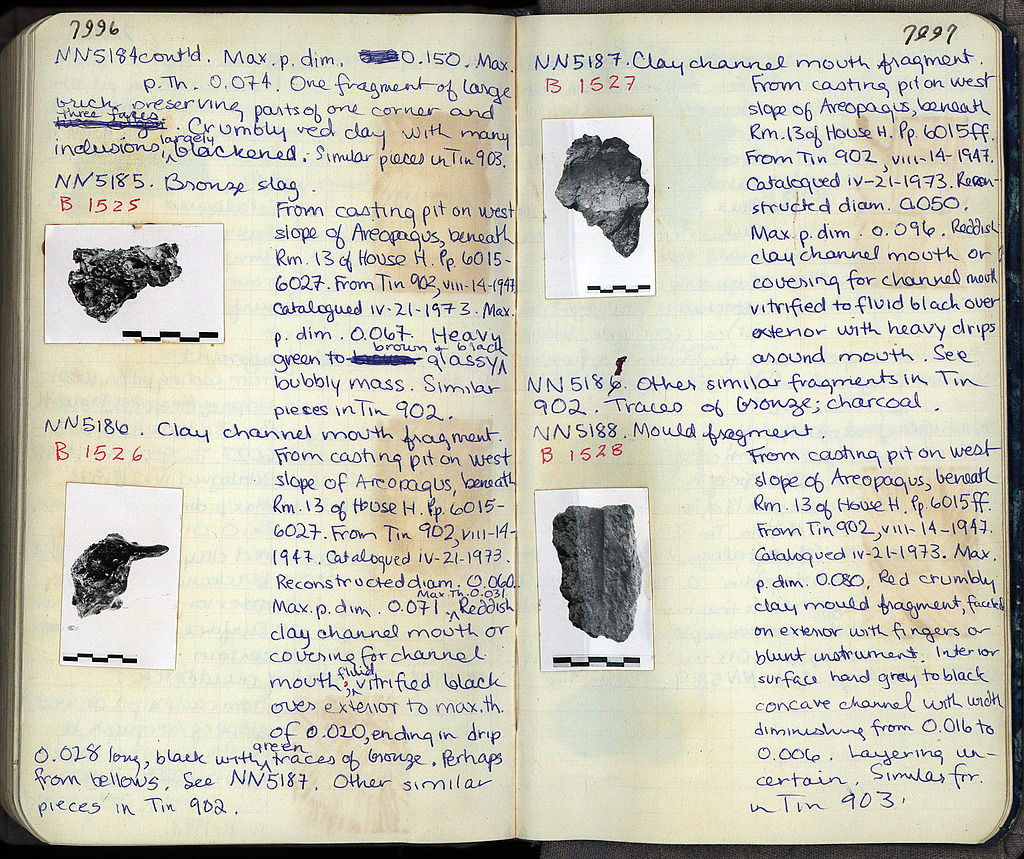 7996
NN5184 cont'd. Max. p. dim. 0.150. Max.
p. Th. 0.074. One fragment of large
brick preserving parts of one corner and
three faces. Crumbly red clay with many
inclusions, largely blackened. Similar pieces in Tin 903.
NN5185. Bronze slag.
B 1525
From casting pit on west
slope of Areopagus, beneath
Rm. 13 of House H. Pp. 6015-
6027. From Tin 902, viii-14-1947
Catalogued iv-21-1973. Max.
p. dim. 0.067. Heavy
green to brown + black glassy
bubbly mass. Similar
pieces in Tin 902.
NN5186. Clay channel mouth fragment.
B 1526
From casting pit on west
slope of Areopagus, beneath
Rm. 13 of House H. Pp. 6015-
6027. From Tin 902, viii-14-
1947. Catalogued iv-21-1973.
Reconstructed diam. 0.060.
Max. p. dim. 0.071, Max. Th. 0.031. Reddish
clay channel mouth or
covering for channel
mouth; fluid vitrified black
over exterior to max. th.
of 0.020, ending in drip
0.028 long, black with green traces of bronze. Perhaps
from bellows. See NN5187. Other similar
pieces in Tin 902.
7997
NN5187. Clay channel mouth fragment.
B 1527
From casting pit on west
slope of Areopagus, beneath
Rm. 13 of House H. Pp. 6015ff.
From Tin 902, viii-14-1947.
Catalogued iv-21-1973. Recon-
structed diam. 0.050.
Max. p. dim. 0.096. Reddish
clay channel mouth or
covering for channel mouth
vitrified to fluid black over
exterior with heavy drips
around mouth. See
NN5186. Other similar fragments in Tin
902. Traces of bronze; charcoal.
NN5188. Mould fragment.
B 1528
From casting pit on west
slope of Areopagus, beneath
Rm. 13 of House H. Pp. 6015ff.
From Tin 902, viii-14-1947.
Catalogued iv-21-1973. Max.
p. dim. 0.080. Red crumbly
clay mould fragment, faceted
on exterior with fingers or
blunt instrument. Interior
surface hard grey to black
concave channel with width
diminishing from 0.016 to
0.006. Layering un-
certain. Similar frr.
in Tin 903.